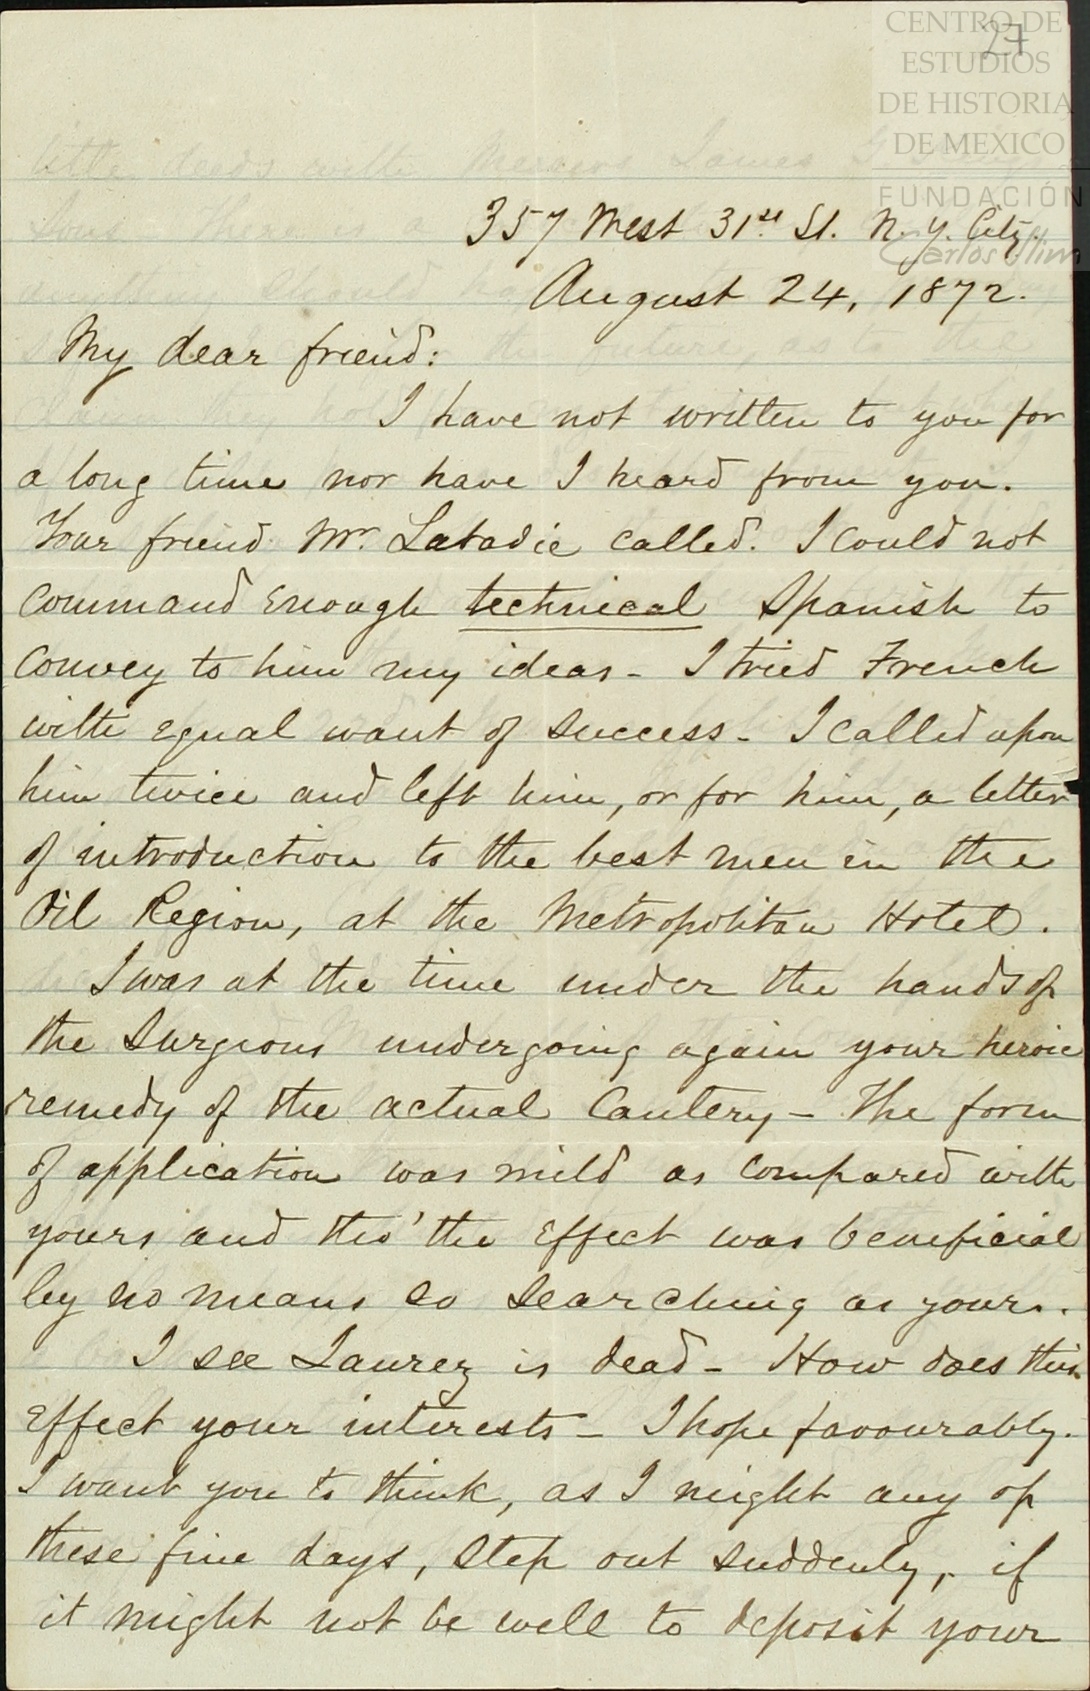 CENTRO DE
ESTUDIOS
DE HISTORIA
DE MEXICO
FUNDACIÓN
Carlos Slim
27
357 West 31st. St. N. Y. City.
August 24, 1872.
My dear friend:
I have not written to you for
a long time nor have I heard from you.
Your friend Mr. Labadie called. I could not
command enough technical Spanish to
convey to him my ideas - I tried French
with equal want of success - I called upon
him twice and left him, or for him, a letter
of introduction to the best men in the
Oil Region, at the Metropolitan Hotel.
I was at the time under the hands of
the Surgeons undergoing again your heroic
remedy of the actual Cautery - The form
of application was mild as compared with
yours and tho' the effect was beneficial
by no means so searching as yours.
I see Jaurez is dead - How does this
effect your interests - I hope favourably.
I want you to think, as I might any of
these fine days, step out suddenly, if
it might not be well to deposit your